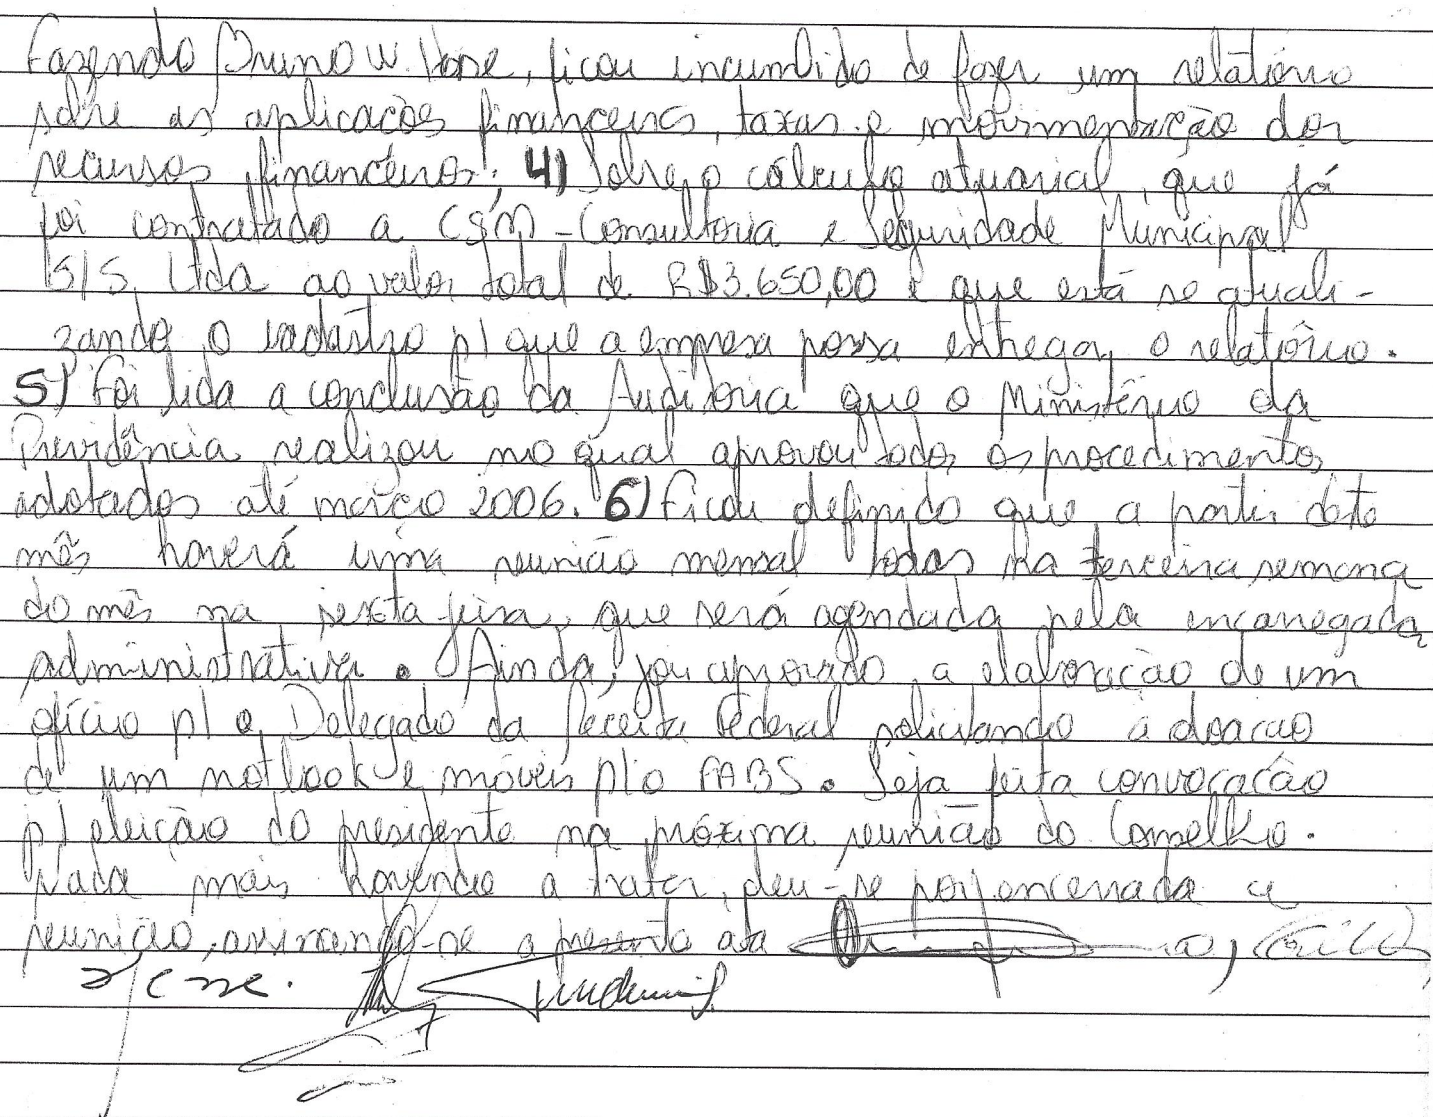 Fazendo Bruno W. Hone, ficou incumbido de fazer um relatório
sobre as aplicacões financeiras, taxas e movimentação dos
recursos financeiros; 4) Sobre o cálculo atuarial, que já
foi contratado a CSM - Consultoria e Seguridade Municipal
S/S Ltda ao valor total de R$3.650,00 e que está se atuali-
zando o cadastro p/ que a empresa possa entregar o relatório.
5) Foi lida a conclusão da Auditoria que o Ministério da
Previdência realizou no qual aprovou todos os procedimentos
adotados até março 2006. 6) Ficou definido que a partir deste
mês haverá uma reunião mensal todas na terceira semana
do mês na sexta feira, que será agendada pela encarregada
administrativa. Ainda, foi aprovado a elaboração de um
ofício p/ o Delegado da Receita Federal solicitando a doacao
de um notbook e móveis p/ o FABS. Seja feita convocação
p/ eleição do presidente na próxima reunião do Conselho.
Nada mais havendo a tratar, deu-se por encerrada a
reunião, assinando-se a presente ata